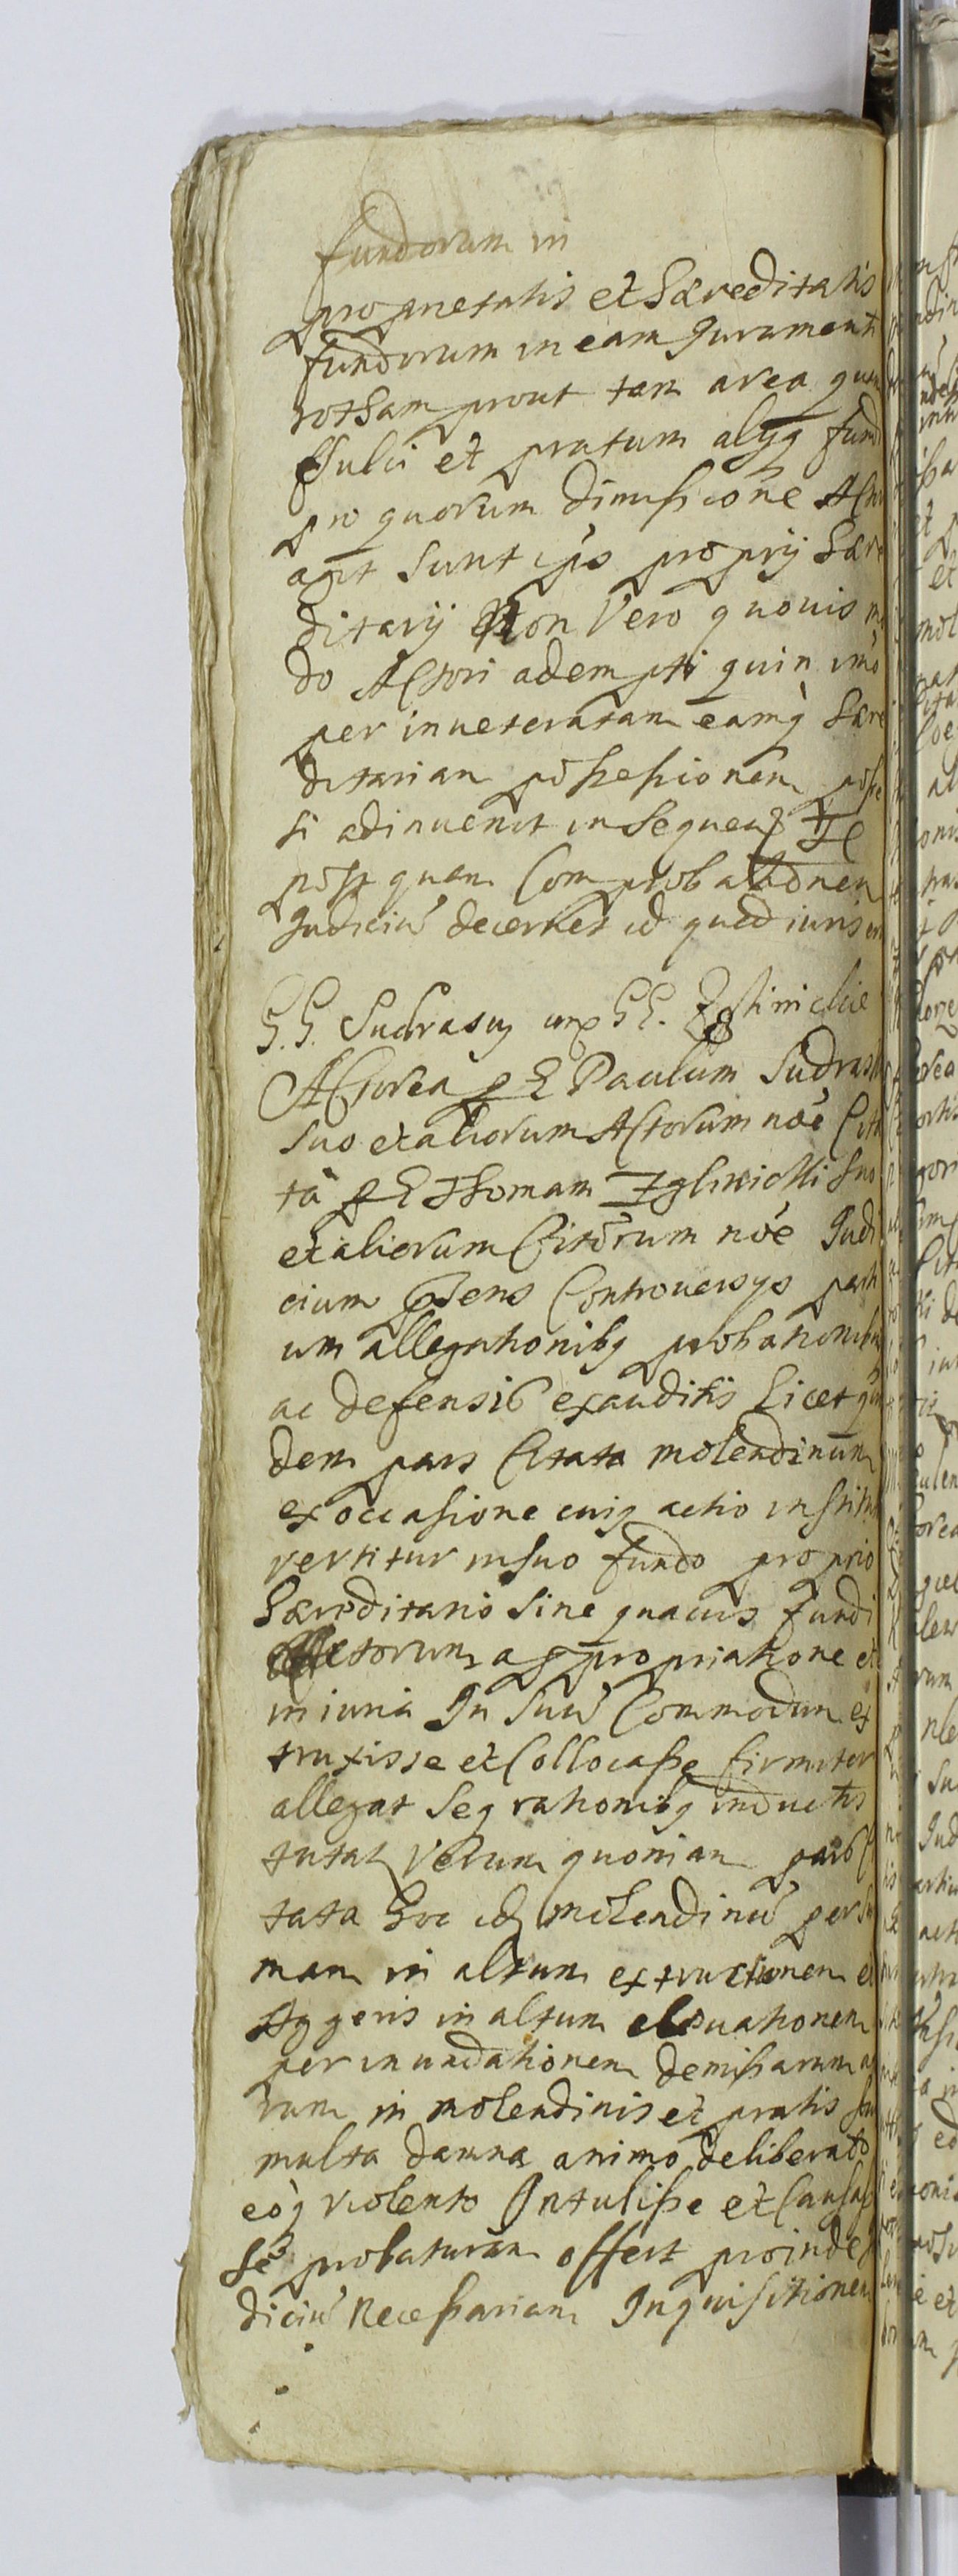 fundorum in
proprietatis et Hæreditatis
fundorum in eam Jurament
rotham prout tam area qua
et pratum alijq fund
pro quorum dimissione Acto
agit sunt ips proprij Hære
ditarij Non Vero quouis mo
do Actori adempti quin imo
per inueteratam eamq Hære
ditariam possessionem posse
si adinuenit insequen
post quam Comprobationem
Judiciu decernet id quod iuris er
G.G. Sudrasy
Actorea p G Paulum Sudras
suo et aliorum Actorum noe Cita
ta p G Thomam suo
et aliorum Citorum noe Judi
cium psens Controuersys parti
um allegationibq probationibu
ac defensib exauditis Licet qui
dem pars Citata molendinum
ex occasione cuiq actio instit
vertitur in suo fundo proprio
Hæreditario sine quauis fundi
Actorum appropriatione et
iniuria In Suu Commodum ex
truxisse et Collocasse firmiter
allegat Seq rationibq inductis
tutat Verum quoniam pars C
tata Hoc idq molendinu per su
mam in altum extructionem et
Aggeris in altum eleuationem
per inundationem demissarum aq
rum in molendinis et pratis su
multa damna animo deliberato
eoq violento Intulisse et Causas
se probaturam offert proinde
diciu Necessariam Inquisitionem